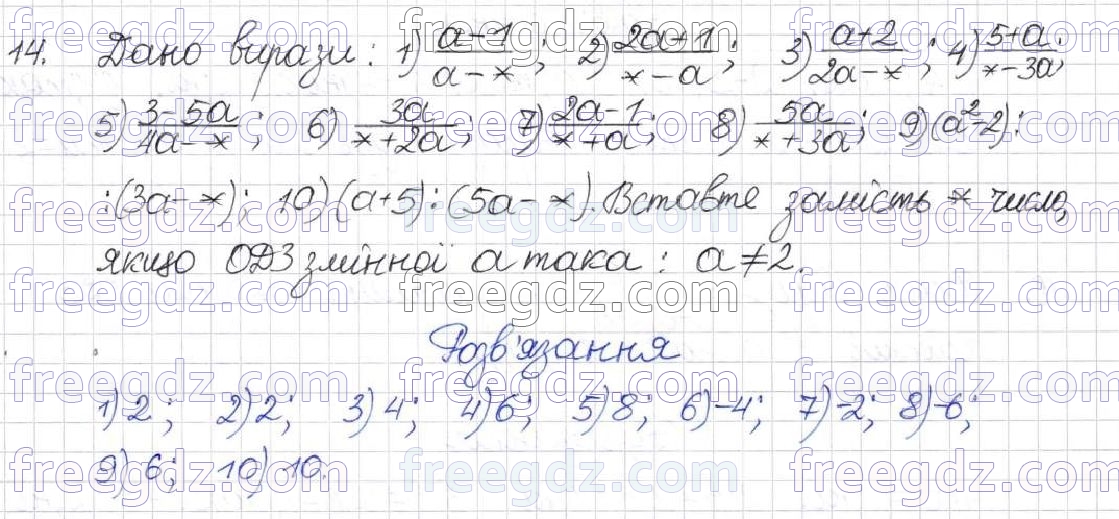 14. Дано вирази: 1) (a-1)/(a-*); 2) (2a+1)/(*-a); 3) (a+2)/(2a-*); 4) (5+a)/(*-3a);
5) (3-5a)/(4a-*); 6) 3a/(*+2a); 7) (2a-1)/(*+a); 8) 5a/(*+3a); 9) (a²-2):
:(3a-*); 10) (a+5):(5a-*). Вставте замість * число,
якщо ОДЗ змінної a така: a≠2.
Розв'язання
1) 2; 2) 2; 3) 4; 4) 6; 5) 8; 6) -4; 7) -2; 8) -6;
9) 6; 10) 10.
freegdz.com